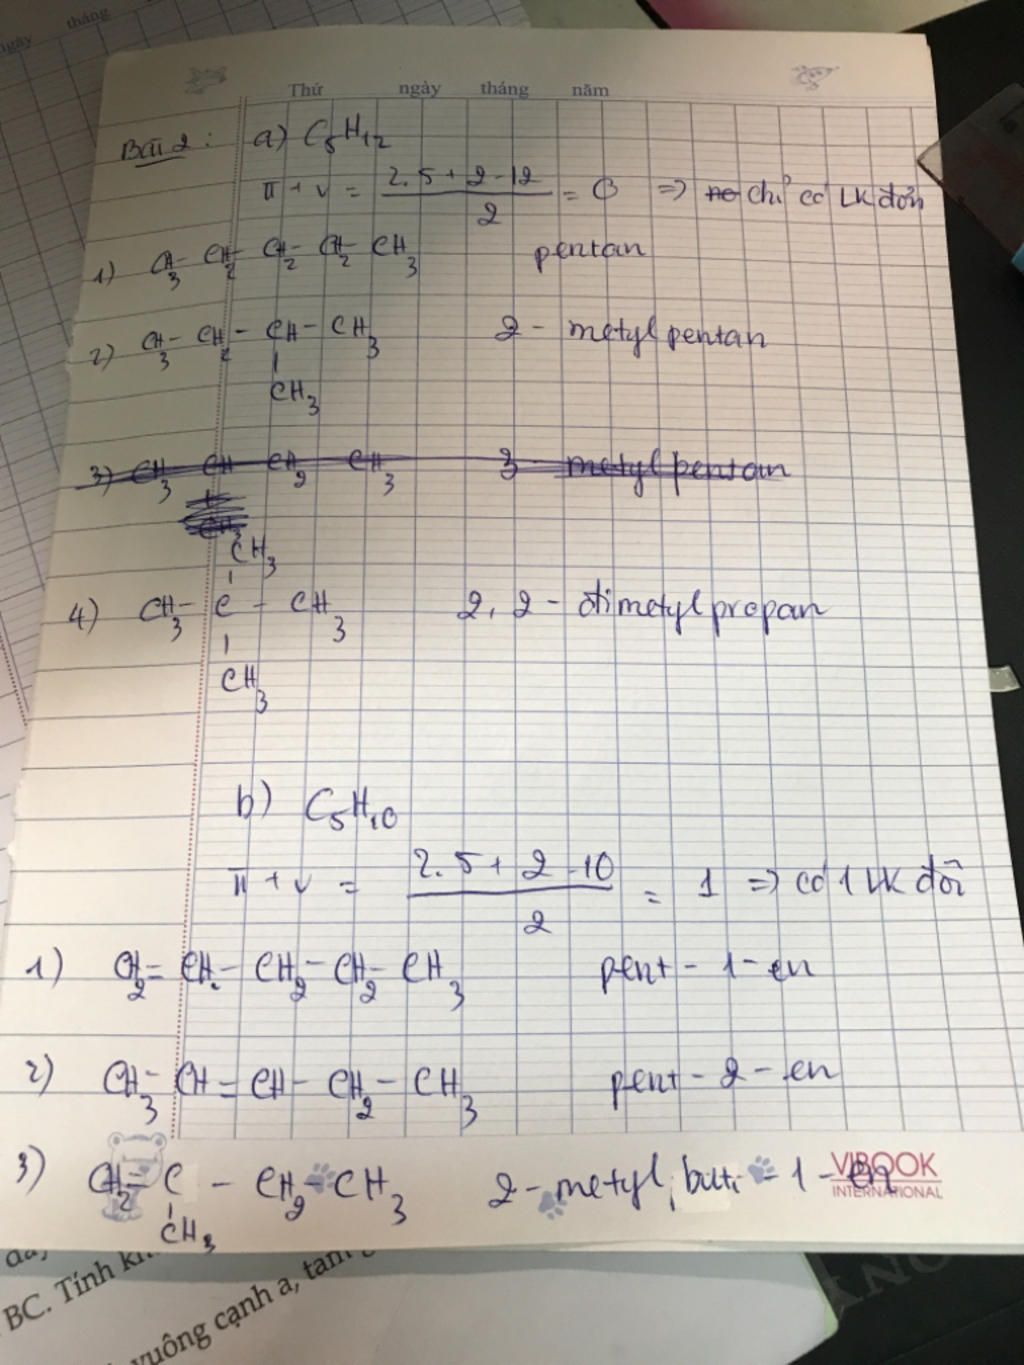 tháng
ngày
Thứ ngày tháng năm
Bài 2: a) C5H12
π + v = (2.5 + 2 - 12)/2 = 0 => chỉ có LK đơn
1) CH3 - CH2 - CH2 - CH2 - CH3 pentan
2) CH3 - CH2 - CH - CH3 2 - metyl pentan
CH3
3) CH3 CH CH2 CH3 3 - metyl pentan
CH3
4) CH3 - C - CH3 2, 2 - đimetyl propan
CH3
b) C5H10
π + v = (2.5 + 2 - 10)/2 = 1 => có 1 LK đôi
1) CH2 = CH - CH2 - CH2 - CH3 pent - 1 - en
2) CH3 - CH = CH - CH2 - CH3 pent - 2 - en
3) CH2 = C - CH2 - CH3 2 - metyl, but - 1 - en
CH3
VIBOOK
INTERNATIONAL
BC. Tính
vuông cạnh a, tam